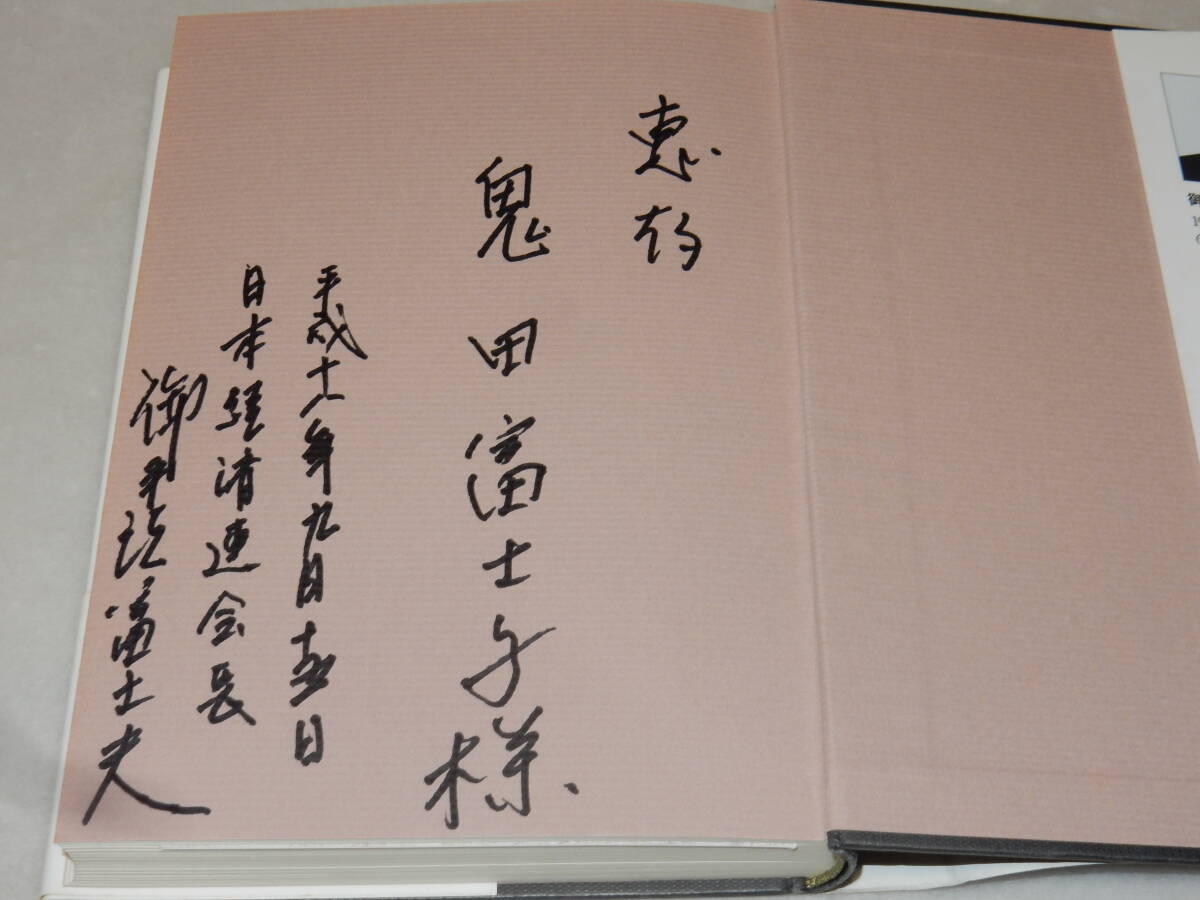 恵存
鬼田富士子様
平成十八年九月十五日
日本経済連会長
御手洗富士夫
御